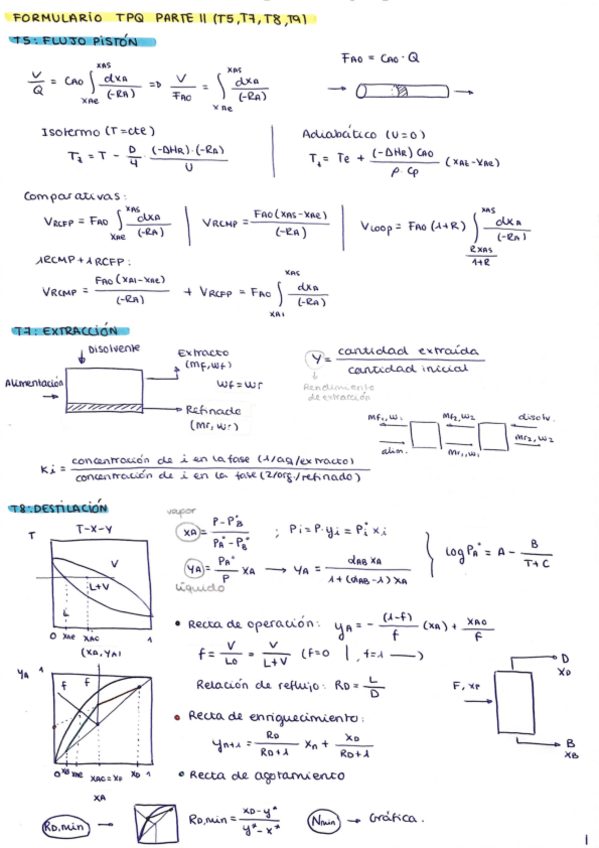 FORMULARIO TPQ PARTE II (T5,T7,T8,T9)
T5: FLUJO PISTÓN
V/Q = CAO ∫XAe^XAS dXA/(-RA) => V/FAO = ∫XAe^XAS dXA/(-RA)
FAO = CAO · Q
Isotermo (T=cte)
Tf = T - D/4 · (-ΔHR)·(-RA)/U
Adiabático (U=0)
Ts = Te + (-ΔHR) CAO/ρ·Cp (XAE-XAe)
Comparativas:
VRCFP = FAO ∫XAe^XAS dXA/(-RA) | VRCMP = FAO(XAS-XAe)/(-RA) | VLOOP = FAO (1+R) ∫RXAS/1+R^XAS dXA/(-RA)
1RCMP + 1RCFP:
VRCMP = FAO (XA1-XAe)/(-RA) + VRCFP = FAO ∫XA1^XAS dXA/(-RA)
T7: EXTRACCIÓN
Disolvente
Alimentación
Extracto
(mf, wf)
wf = wr
Refinado
(mr, wr)
Y = cantidad extraída/cantidad inicial
Rendimiento
de extracción
mf1, w1
mf2, w2
disolv.
alim.
mr1, w1
mr2, w2
Ki = concentración de i en la fase (1/aq/extracto)/concentración de i en la fase (2/org/refinado)
T8: DESTILACIÓN
T
T-X-Y
V
L+V
L
0 XAe XAC 1
(XA, YA)
vapor
XA = P-PB°/PA°-PB° ; Pi = P·yi = Pi° xi
YA = PA°/P XA → YA = αAB XA/1+(αAB-1) XA
líquido
log PA° = A - B/T+C
• Recta de operación: yA = - (1-f)/f (XA) + XAO/f
f = V/L0 = V/L+V (f=0 |, f=1 —)
Relación de reflujo: RD = L/D
• Recta de enriquecimiento:
yn+1 = RD/RD+1 Xn + XD/RD+1
• Recta de agotamiento
YA
1
f
f
0 XB XAe XAC = XF XD 1
XA
F, XF
D
XD
B
XB
RD,min →
RD,min = XD-y*/y*-x*
Nmin → Gráfica.
1